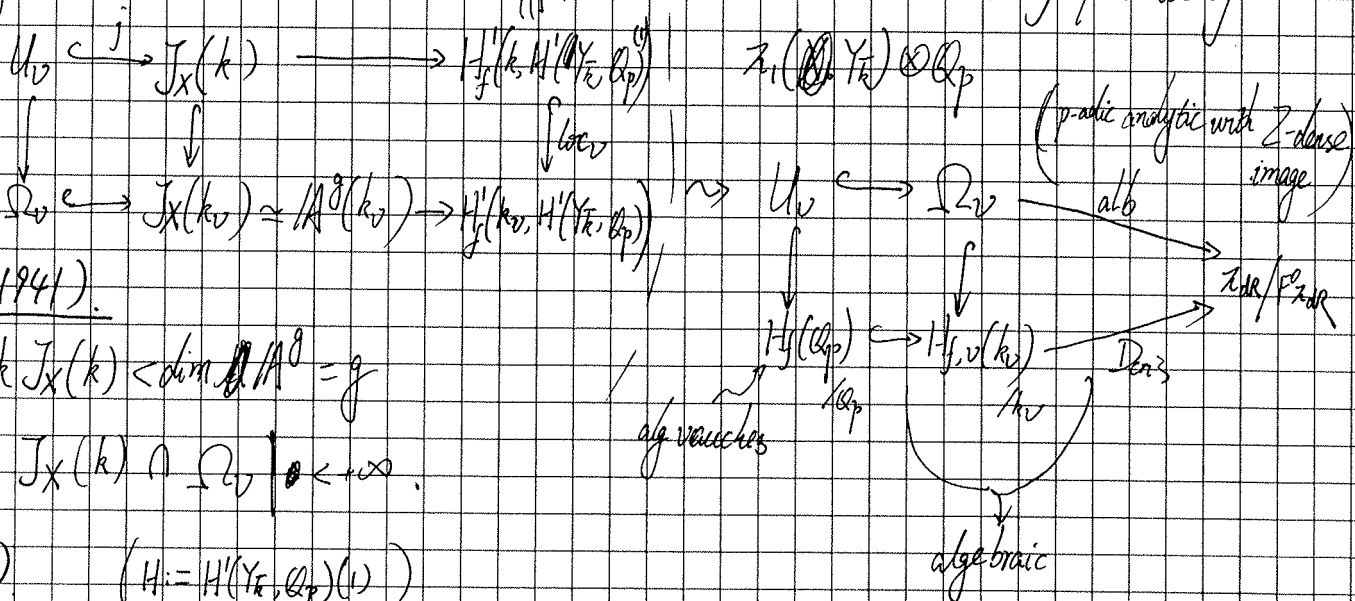 U_v ↪ J_X(k) ⟶ H^1_f(k, H^1(Y_k̄, Q_p)(1))
j
π_1( Y_k̄) ⊗ Q_p
loc_v
(p-adic analytic with Z-dense image)
Ω_v ↪ J_X(k_v) ≃ A^g(k_v) → H^1_f(k_v, H^1(Y_k̄, Q_p)) ⇝ U_v ↪ Ω_v
alb
π_dR/F^0π_dR
1941).
H_f(Q_p) ↪ H_{f,v}(k_v)
/Q_p /k_v
k J_X(k) < dim A^g = g
J_X(k) ∩ Ω_v | < +∞.
algebraic
(H := H^1(Y_k̄, Q_p)(1))